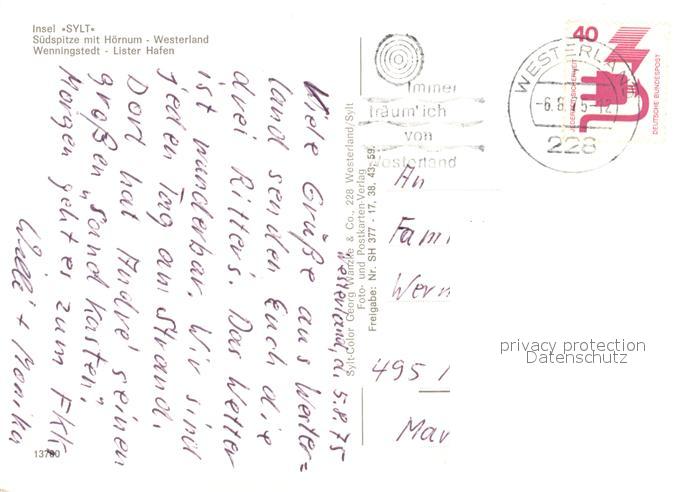 Insel •SYLT•
Südspitze mit Hörnum - Westerland
Wenningstedt - Lister Hafen
Westerland, d. 5.8.75
Viele Grüße aus Wester=
land senden Euch die
drei Ritters. Das Wetter
ist wunderbar. Wir sind
jeden Tag am Strand.
Dort hat André seinen
großen „Sandkasten".
Morgen geht es zum FKK.
Willi + Monika
13700
Sylt-Color Georg Wanzke & Co., 228 Westerland/Sylt
Foto- und Postkarten-Verlag
Freigabe: Nr. SH 377 - 17, 38, 43, 59.
Immer
träum' ich
von
Westerland
WESTERLAND
-6.8.75-12
228
40
JEDERZEIT SICHERHEIT
DEUTSCHE BUNDESPOST
An
Fami
Wern
495
privacy protection
Datenschutz